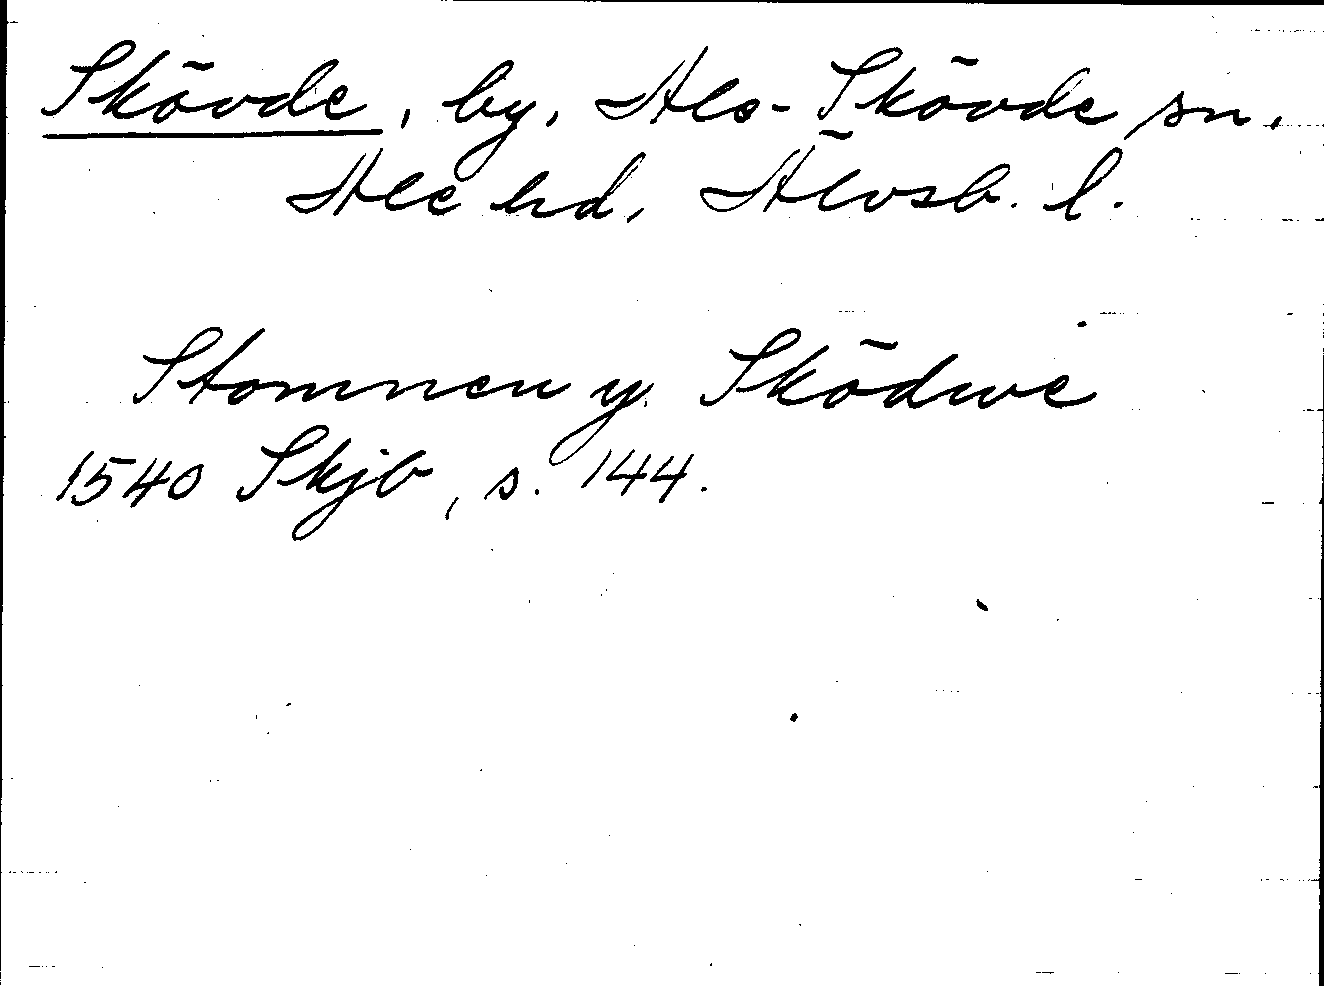 Skövde, by, Als-Skövde sn.
Ale hd, Älvsb. l.
Stomnen y Sködwe
1540 Skjb, s. 144.